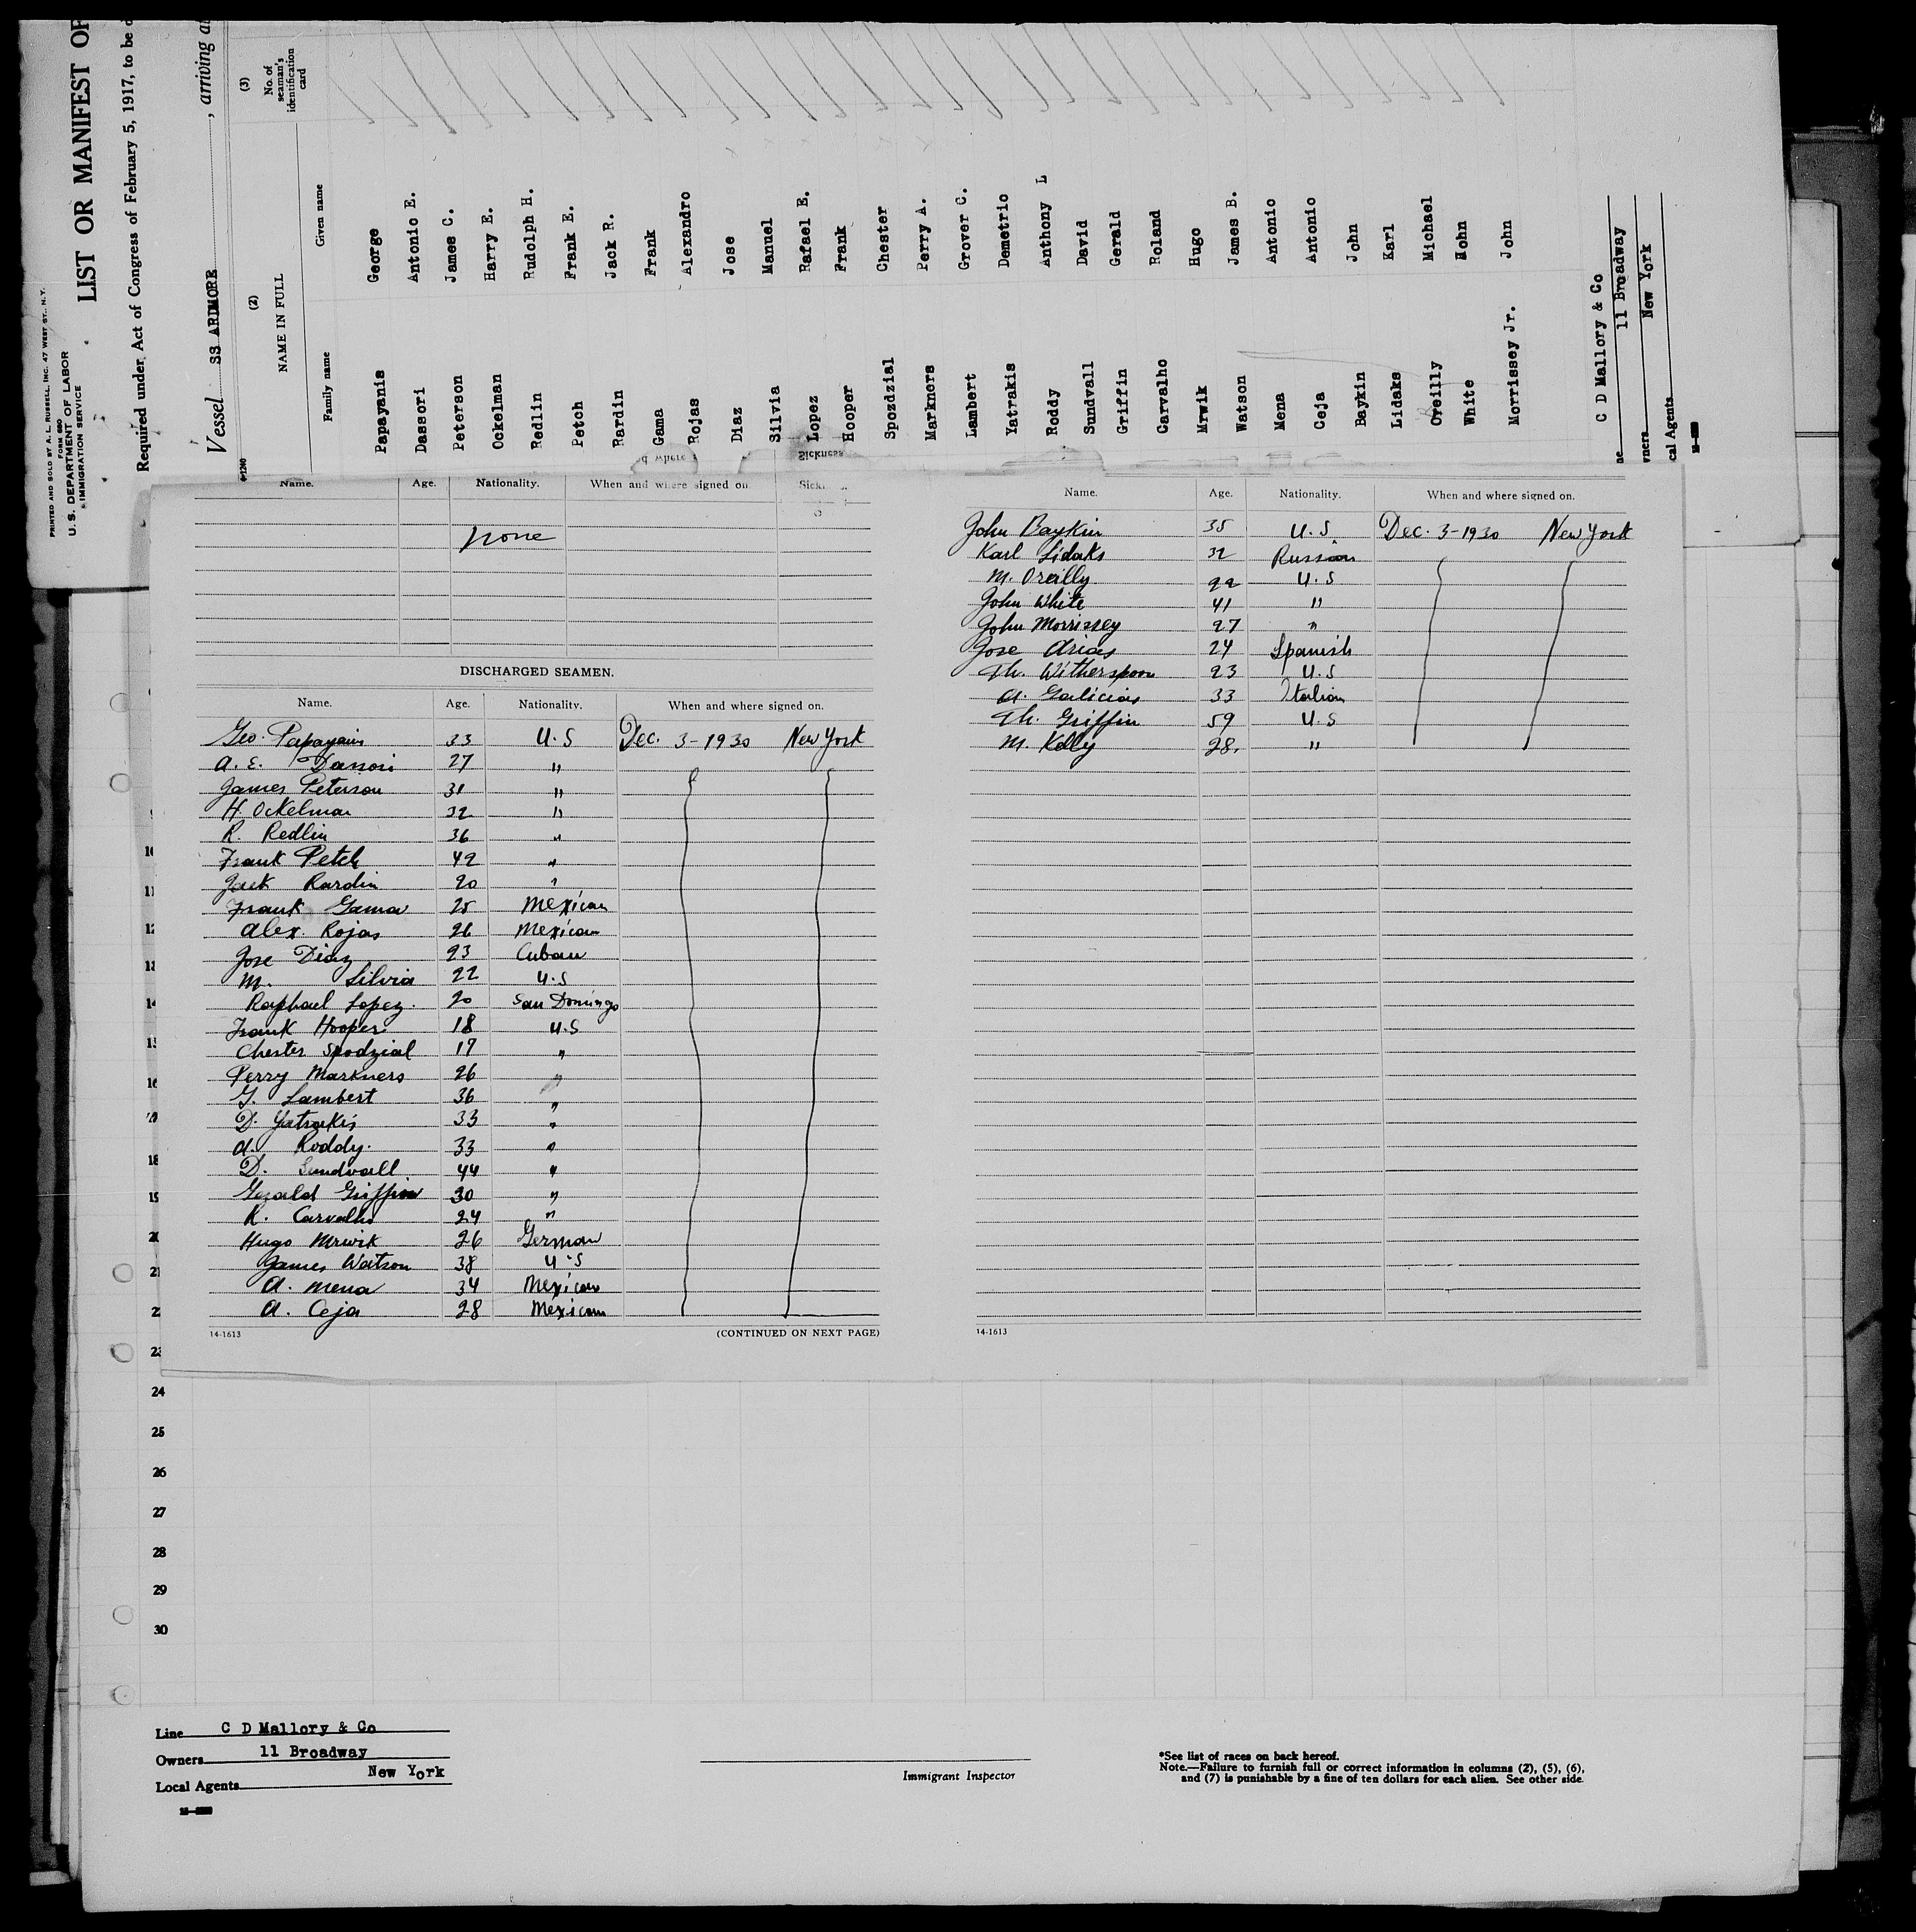 PRINTED AND SOLD BY A. L. RUSSELL, INC. 47 WEST ST., N.Y.
FORM 680
U. S. DEPARTMENT OF LABOR
IMMIGRATION SERVICE
LIST OR MANIFEST OF
Required under Act of Congress of February 5, 1917, to be
Vessel SS ARDMORE, arriving at
(2) (3)
NAME IN FULL No. of seaman's identification card
Family name Given name
Papayanis George
Dassori Antonio E.
Peterson James C.
Ockelman Harry E.
Redlin Rudolph H.
Petch Frank E.
Rardin Jack R.
Gama Frank
Rojas Alexandro
Diaz Jose
Silvia Manuel
Lopez Rafael E.
Hooper Frank
Spozdzial Chester
Markners Perry A.
Lambert Grover C.
Yatrakis Demetrio
Roddy Anthony L
Sundvall David
Griffin Gerald
Carvalho Roland
Mrwik Hugo
Watson James B.
Mena Antonio
Ceja Antonio
Baykin John
Lidaks Karl
Oreilly Michael
White John
Morrissey Jr. John
C D Mallory & Co
11 Broadway
wners New York
cal Agents
Sickness
Name. Age. Nationality. When and where signed on.
none
DISCHARGED SEAMEN.
Name. Age. Nationality. When and where signed on.
Geo. Papayanis 33 U.S Dec. 3-1930 New York
A. E. Dassori 27 "
James Peterson 31 "
H. Ockelman 32 "
R. Redlin 36 "
Frank Petch 42 "
Jack Rardin 20 "
Frank Gama 25 Mexican
Alex. Rojas 26 Mexican
Jose Diaz 23 Cuban
M. Silvia 22 U.S
Raphael Lopez. 20 San Domingo
Frank Hooper 18 U.S
Chester Spodzial 17 "
Perry Markners 26 "
G. Lambert 36 "
D. Yatrakis 33 "
A. Roddy. 33 "
D. Sundvall 44 "
Gerald Griffin 30 "
R. Carvalho 24 "
Hugo Mrwik 26 German
James Watson 38 U.S
A. Mena 34 Mexican
A. Ceja 28 Mexican
14-1613 (CONTINUED ON NEXT PAGE)
Name. Age. Nationality. When and where signed on.
John Baykin 35 U.S Dec. 3-1930 New York
Karl Lidaks 32 Russian
M. Oreilly 22 U.S
John White 41 "
John Morrissey 27 "
Jose Arias 24 Spanish
Th. Witherspoon 23 U.S
A. Galicias 33 Italian
Th. Griffin 59 U.S
M. Kelly 28. "
14-1613
18
23
24
25
26
27
28
29
30
Line C D Mallory & Co
Owners 11 Broadway
New York
Local Agents
Immigrant Inspector
*See list of races on back hereof.
Note.—Failure to furnish full or correct information in columns (2), (5), (6),
and (7) is punishable by a fine of ten dollars for each alien. See other side.